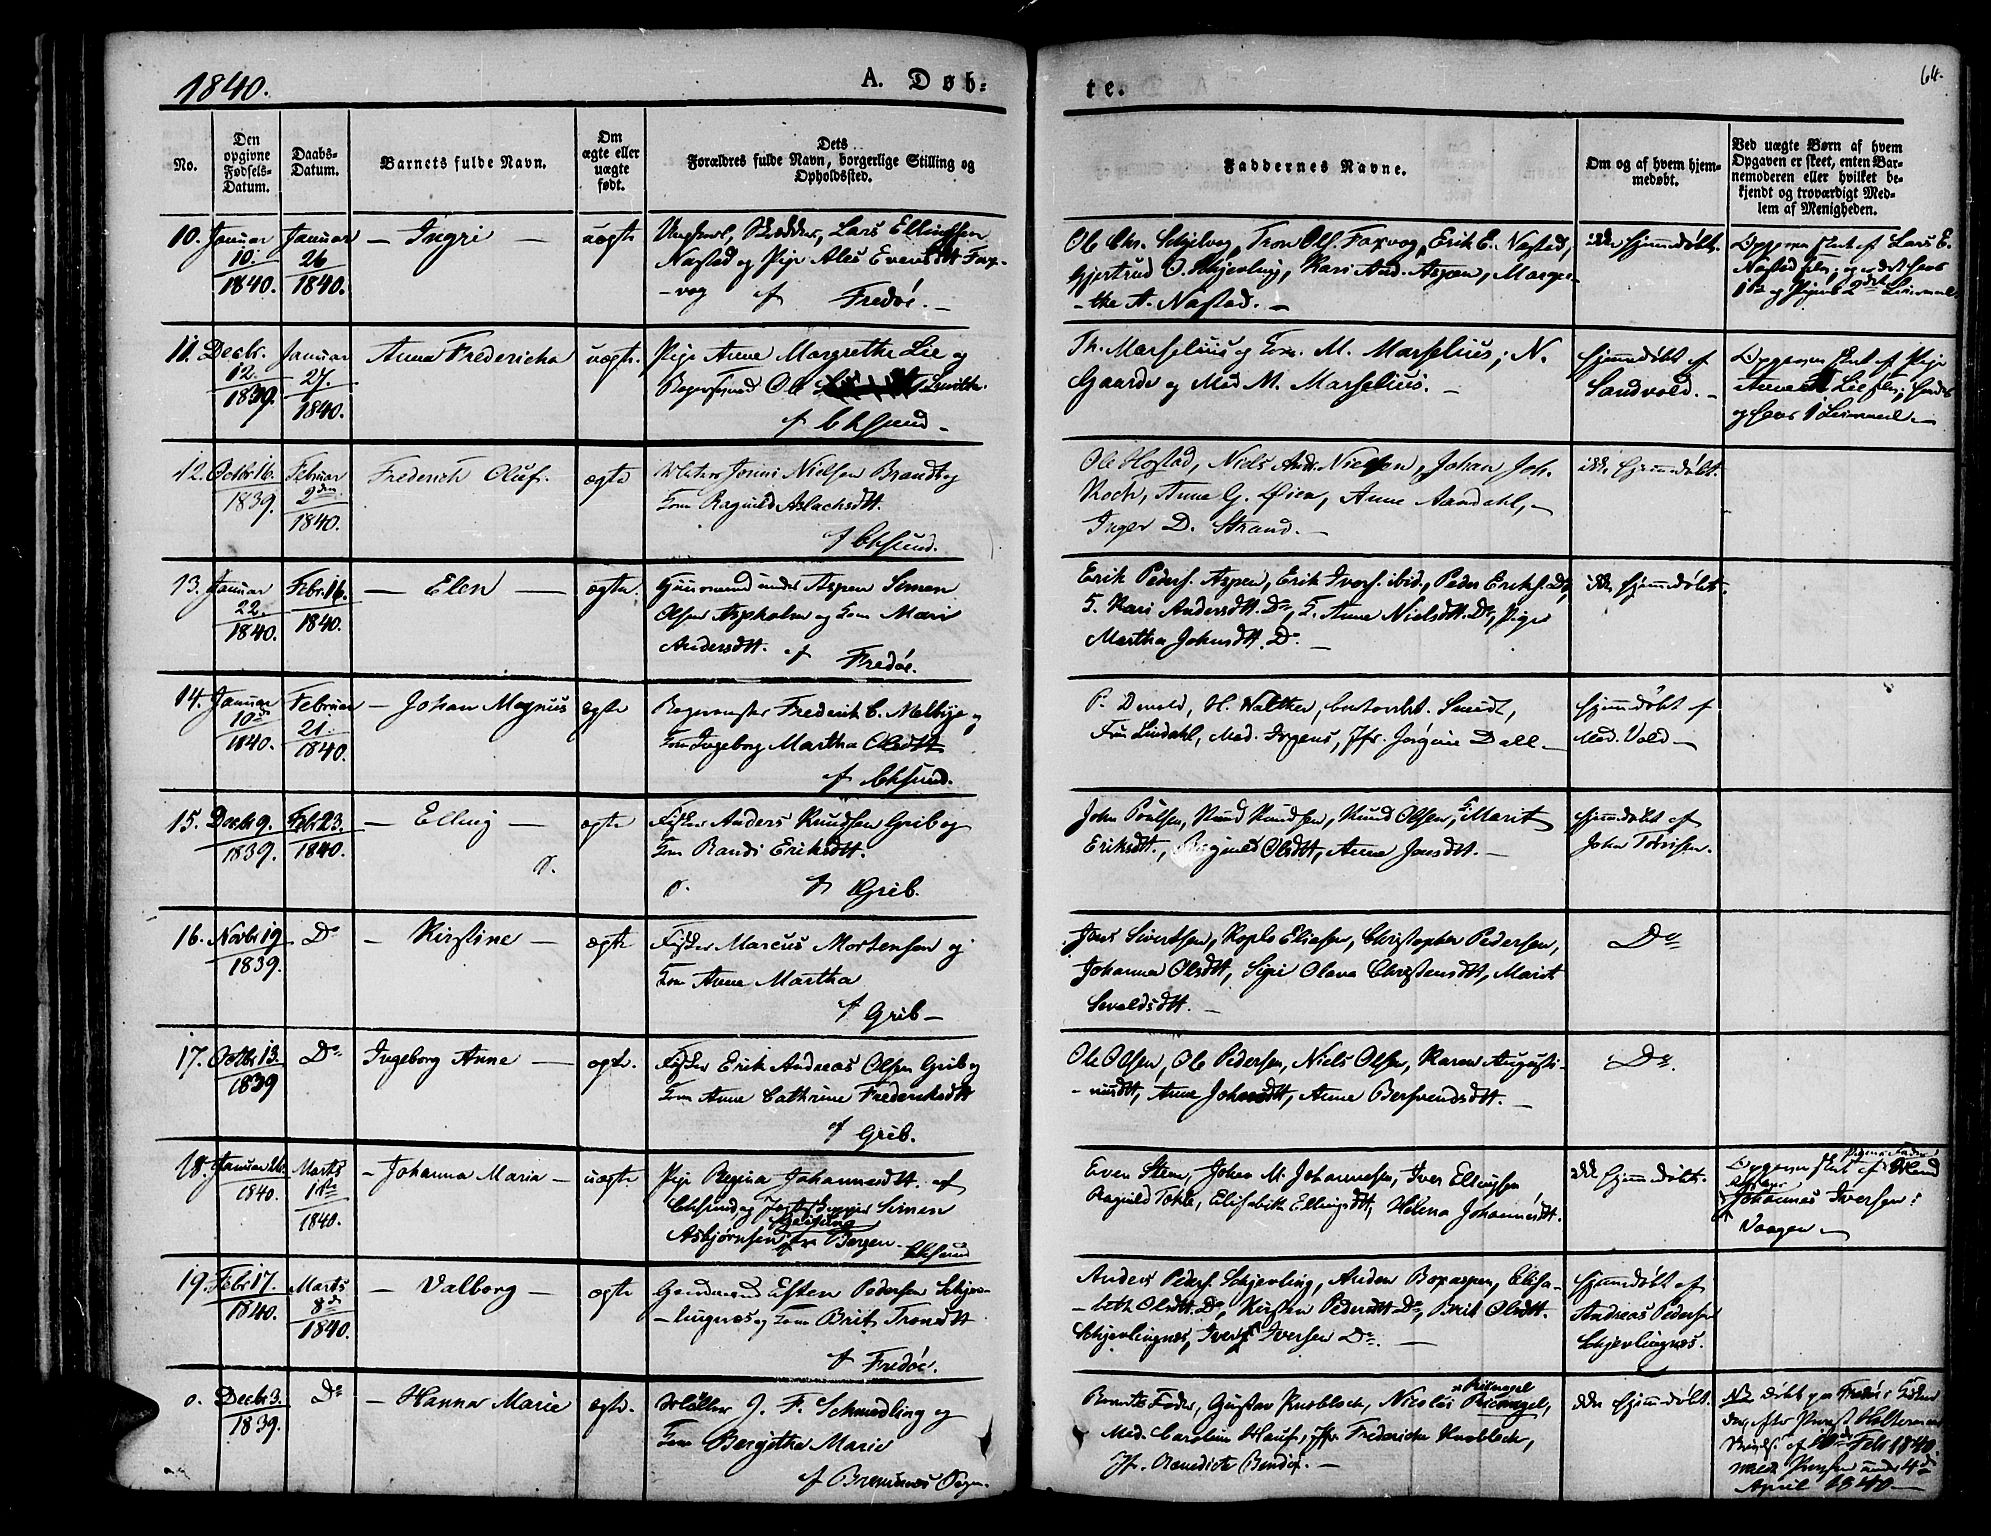 1840.
A. Døb=
te.
64.
No.
Den opgivne Fødsels-Datum.
Daabs-Datum.
Barnets fulde Navn.
Om ægte eller uægte født.
Dets Forældres fulde Navn, borgerlige Stilling og Opholdssted.
Faddernes Navne.
Om og af hvem hjemmedøbt.
Ved uægte Børn af hvem Opgaven er skeet, enten Barnemoderen eller hvilket bekjendt og troværdigt Medlem af Menigheden.
10. Januar 10. 1840. Januar 26 1840. — Ingri — uægte
Lars Ellingsen
Nastad og Pige Ales Evensdtt Fox-
-vog af Fredøe. —
Ole Chr. Schjelvog, Tron Ols. Foxvog, Erik E. Nastad,
Gjertrud O. Schjevling, Kari And. Aspen, Margre-
-the A. Nastad. —
ikke hjemmedøbt.
Opgaven skeet af Lars E.
Nastad
11. Decbr. 12. 1839. Januar 27. 1840. Anna Fredericka uægte.
Pige Anne Margrethe Lie og
Ole
af Chsund —
Th. Marselius og Kone M. Marselius; N.
Gaarde og Mad M. Marselius. —
hjemmedøbt af
Sandvold. —
Opgaven skeet af Pige
Anne Lie
12. Octbr 16. 1839. Februar 2den 1840. Frederich Oluf. ægte
Jonni Nielsen Brandt og
Kone Ragnild Aslachsdtt.
af Chsund.
Ole Hostad, Niels And. Nielsen, Johan Joh.
Koch, Anne G. Øien, Anne Aandahl, —
Inger D. Strand. —
ikke hjemmedøbt.
13. Januar 22. 1840. Febr. 16. 1840. — Elen — ægte
Huusmand under Aspen Simen
Olsen Aspholm og Kone Mari
Andersdtt. af Fredøe.
Erik Peders. Aspen, Erik Ivers. ibid., Peder Eriks. Do,
K. Kari Andersdtt. Do, K. Anne Nielsdtt. Do, Pige
Martha Johnsdtt. Do —
ikke hjemmedøbt.
14. Januar 10de 1840. Februar 21. 1840. — Johan Magnus ægte
Bagermester Frederik C. Melbye og
Kone Ingeborg Martha Olsdtt
af Chsund.
P. Dewold, H. Walther,
Fru Lindahl, Mad. Irgens, Jfr. Jørgine Dall —
hjemmedøbt af
Mad. Vold —
15. Decbr 9. 1839. Febr 23. 1840. — Elling — ægte
Fisker Anders Knudsen Grib og
Kone Randi Eriksdtt.
af Grib.
John Poulsen, Knud Knudsen, Knud Olsen, K. Marit
Eriksdtt., Ragnild Olsdtt, Anne Jonsdtt. —
hjemmedøbt af
John Tørrisen.
16. Novbr 19 1839. Do — Kirstine — ægte
Fisker Marcus Mortensen og
Kone Anne Martha
af Grib —
Jens Sivertsen, Kopls Eliasen, Christopher Pedersen,
Johanna Olsdtt, Siri Olava Christensdtt, Marit
Sevaldsdtt. —
Do
17. Octbr 13. 1839 Do Ingeborg Anne — ægte.
Fisker Erik Andreas Olsen Grib og
Kone Anne Cathrine Frederiksdtt
af Grib.
Ole Olsen, Ole Pedersen, Niels Olsen, Karen Augusti-
-nusdtt, Anne Johnsdtt, Anne Bersvendsdtt. —
Do
18. Januar 26. 1840. Marts 1ste 1840. — Johanna Maria — uægte
Pige Regina Johannesdtt. af
Chsund, og Simen
Asbjørnsen Bergen.
Chsund
Even Steen, Johan M. Johannesen, Iver Ellingsen
Ragnild Tokle, Elisabeth Ellingsdtt, Helena Johannesdtt.
ikke hjemmedøbt.
Opgaven skeet af Pigens Fader
Johannes Iversen
Vaagen —
19. Febr 17. 1840. Marts 8de 1840. — Valborg — ægte
Gaardmand Esten Pedersen Schjev-
-lingnæs og Kone Brit Tronsdtt
af Fredøe.
Anders Peders. Schjevling, Anden Boxaspen, Elisa-
-beth Olsdtt. Do, Kirsten Pedersdtt. Do, Brit Olsdtt.
Schjevlingnæs, Iver Iversen Do. —
hjemmedøbt af
Andreas Pedersen
Schjevlingnæs.
0. Decbr 3. 1839. Do — Hanna Marie ægte.
Møller J. F. Schmedling og
Kone Bergitha Marie
af Bremsnæs Sogn.
Gustav Knoblock, Nicolai Riesnegel,
Mad. Caroline Hauf, Jfr. Fredericke Knoblock,
Jfr. Benedicte Bendix. —
ikke hjemmedøbt.
NB døbt paa Fredøe
af 10de Febr 1840.
under 4de
April 1840 —